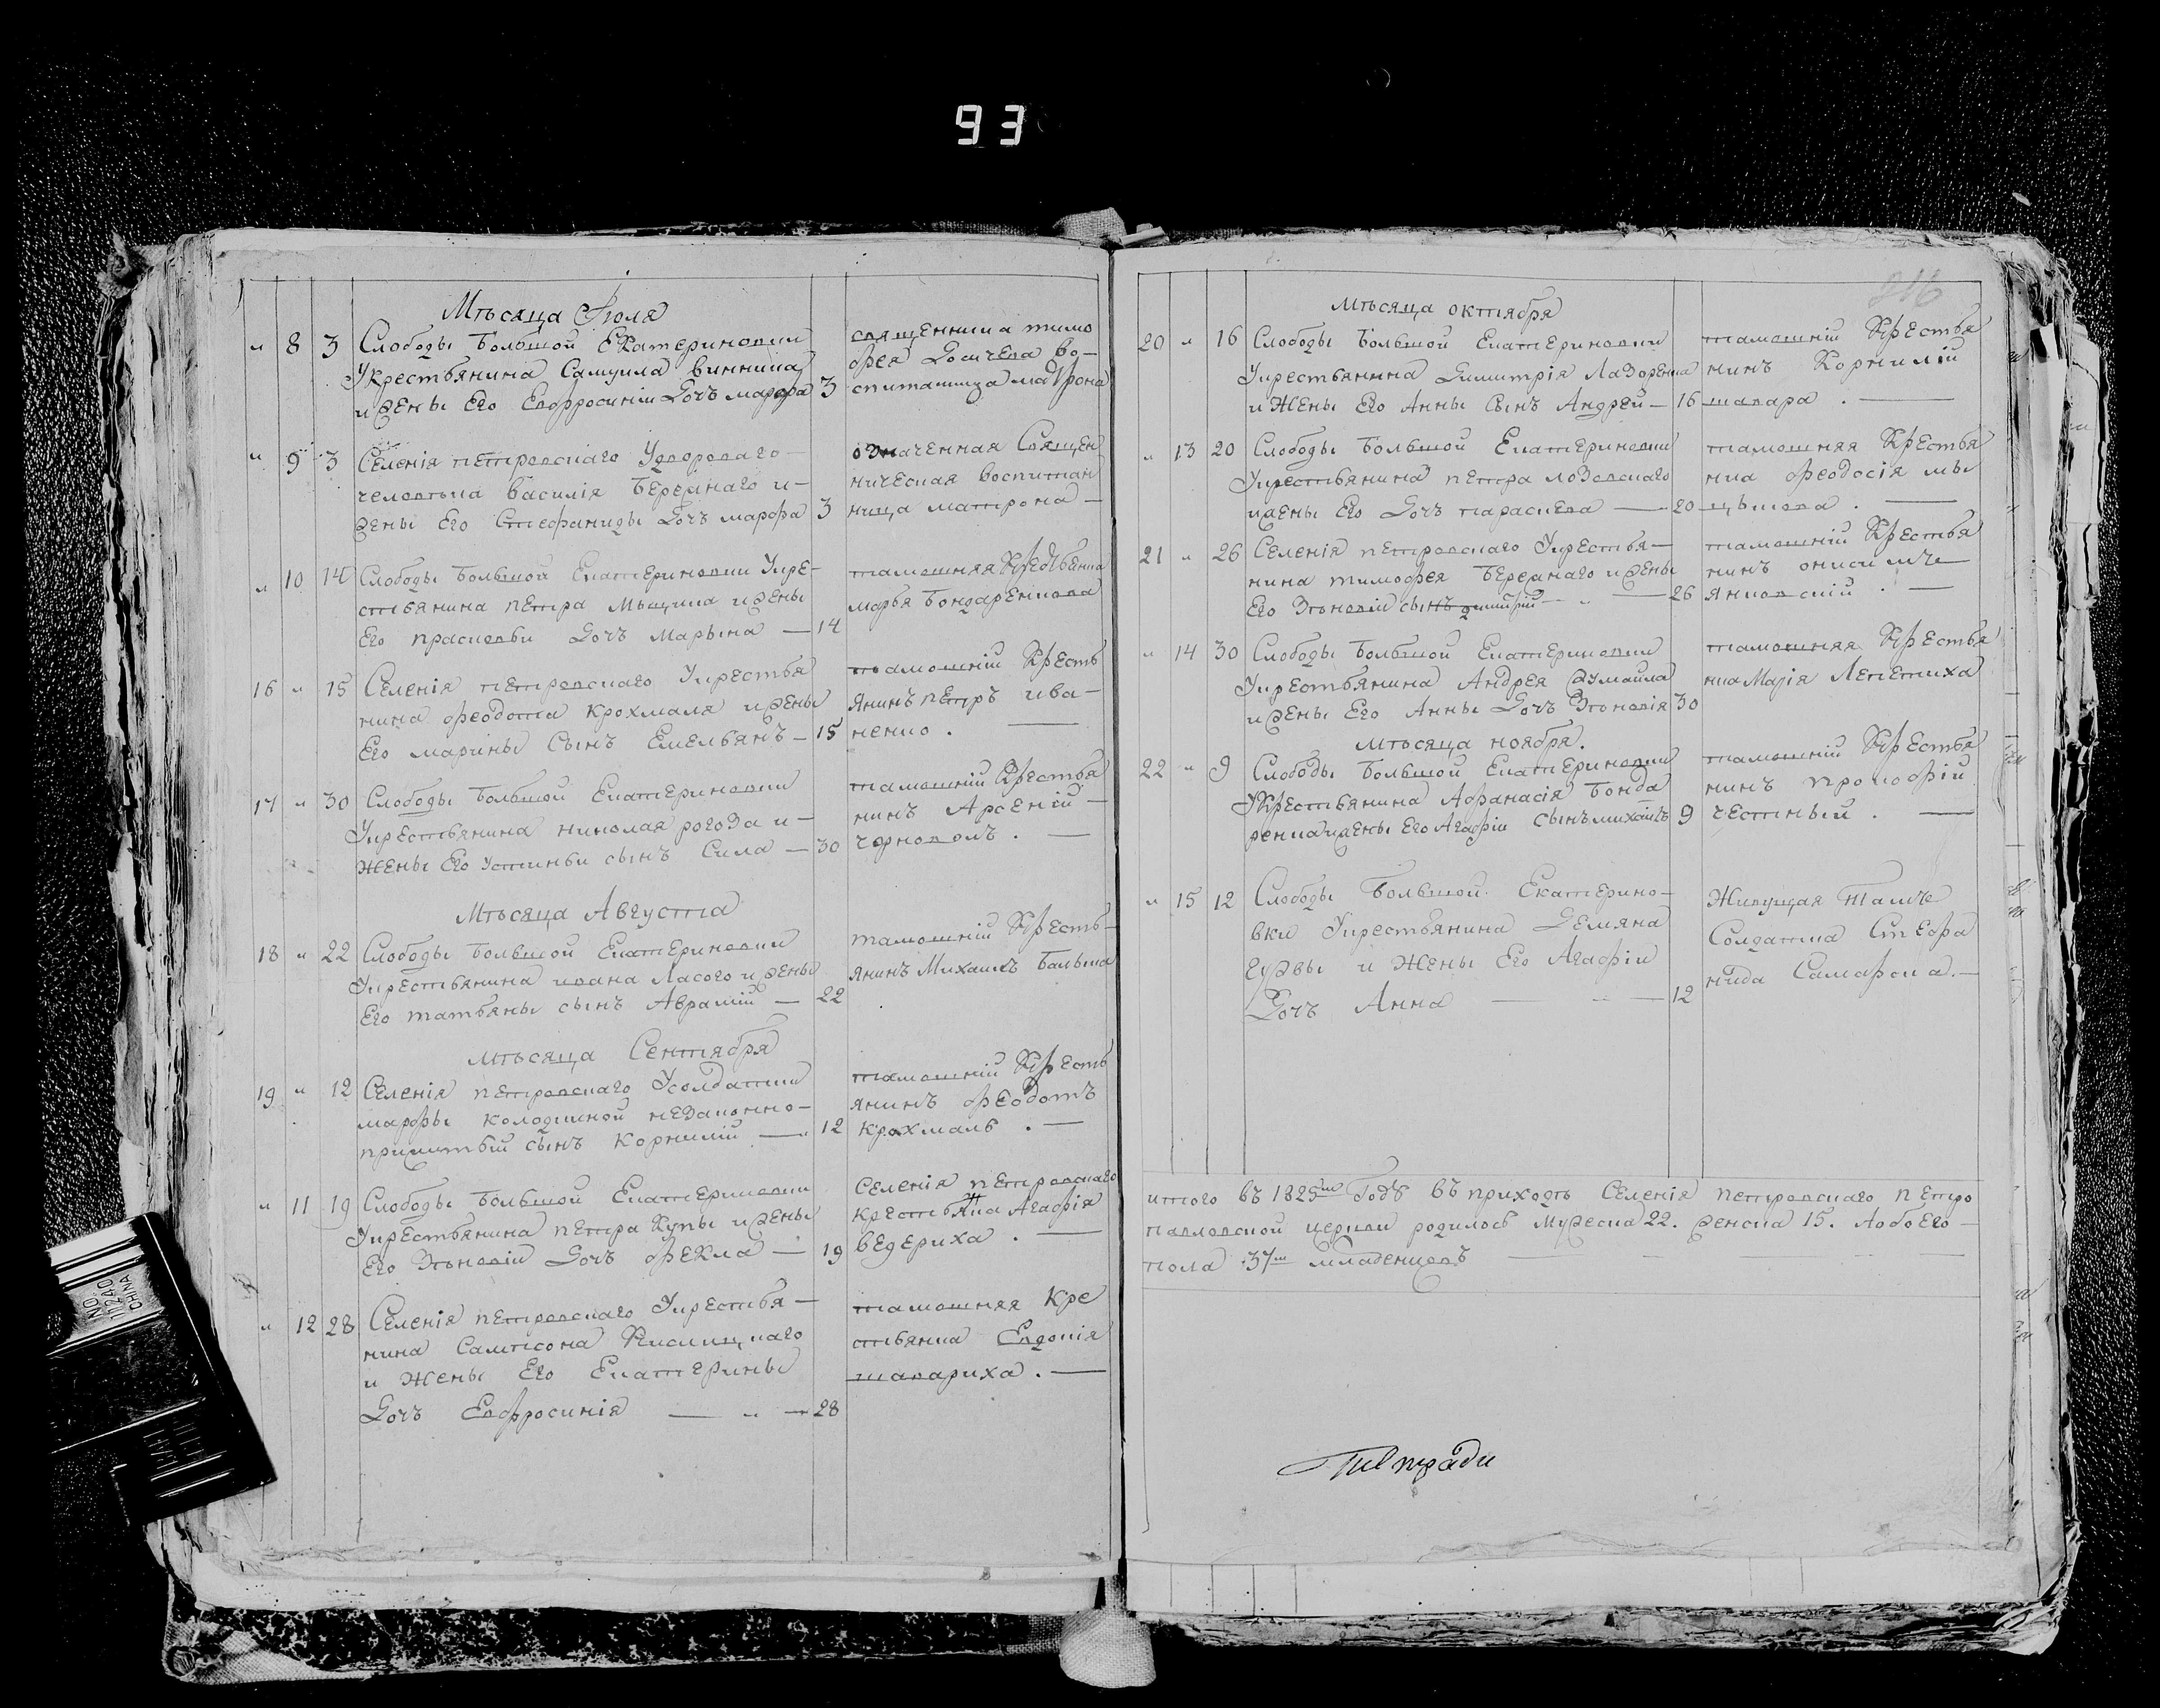 93
Мѣсяца Іюля
„ 8 3 Слободы Большой Екатериновки
Укрестьянина Самуила винника
и Жены Его Евфросиніи Дочь марфа 3
священника тимо
фея воспитанница матрона
„ 9 3 Селенія петровскаго Удвороваго
человѣка василія Бережнаго и
жены Его Стефаниды Дочь марфа 3
означенная Священ
ническая воспитан
ница матрона —
„ 10 14 Слободы Большой Екатериновки Укре-
стьянина петра Мыцика и жены
Его прасковьи Дочь Марьяна — 14
тамошняя Крестьянка
марья Бондаренкова
16 „ 15 Селенія петровскаго Укрестья
нина феодота крохмаля и жены
Его марины Сынъ Емельянъ — 15
тамошній Кресть
янинъ петръ ива-
ненко .
17 „ 30 Слободы Большой Екатериновки
Укрестьянина николая рогоза и —
жены Его устиньи сынъ Сила — 30
тамошній Крестья
нинъ Арсеній —
чорноволъ . —
Мѣсяца Августа
18 „ 22 Слободы Большой Екатериновки
Укрестьянина ивана Ласого и жены
Его татьяны сынъ Аврамій — 22
тамошній Кресть-
янинъ Михаилъ
Мѣсяца Сентября
19 „ 12 Селенія петровскаго Усолдатки
марфы колодяжной незаконно-
прижитый сынъ корнилій — 12
тамошній Кресть
янинъ феодотъ
крохмаль . —
„ 11 19 Слободы Большой Екатериновки
Укрестьянина петра Купы и жены
Его Зѣновіи Дочь фекла — 19
Селенія петровскаго
крестьянка Агафія
ведериха . —
„ 12 28 Селенія петровскаго Укрестья —
нина Сампсона Кислицкаго
и Жены Его Екатерины
Дочь Евфросинія — „ — 28
тамошняя Кре
стьянка Евдокія
шавариха . —
216
мѣсяца октября
20 „ 16 Слободы Большой Екатериновки
Укрестьянина Димитрія Лазоренка
и Жены Его Анны Сынъ Андрей — 16
тамошній Крестья
нинъ Корнилій
шавара . —
„ 13 20 Слободы Большой Екатериновки
Укрестьянина петра лозовскаго
и жены Его Дочь параскева — 20
тамошняя Крестья
нка феодосія мы
цыкова . —
21 „ 26 Селенія петровскаго Укрестья —
нина тимофея Бережнаго и жены
Его Зѣновіи сынъ димитрій — „ — 26
тамошній Крестья
нинъ
янковскій . —
„ 14 30 Слободы Большой Екатериновки
Укрестьянина Андрея Жумайла
и жены Его Анны Дочь Зѣновія 30
тамошняя Крестья
нка Марія Лепетиха
мѣсяца ноября.
22 „ 9 Слободы Большой Екатериновки
Укрестьянина Афанасія Бонда
ренка и жены Его Агафіи Сынъ михаилъ 9
тамошній Крестья
нинъ прокофій
честный . —
„ 15 12 Слободы Большой Екатерино-
вки Укрестьянина Демяна
Гужвы и Жены Его Агафіи
Дочь Анна — „ — 12
Живущая Тамже
Солдатка Стефа
нида Самарска. —
итого въ 1825м Годѣ въ приходѣ Селенія петровскаго петро
павловской церкви родилось Мужеска 22. женска 15. Аобоего —
пола 37м младенцовъ
NO.
11240
CHINA